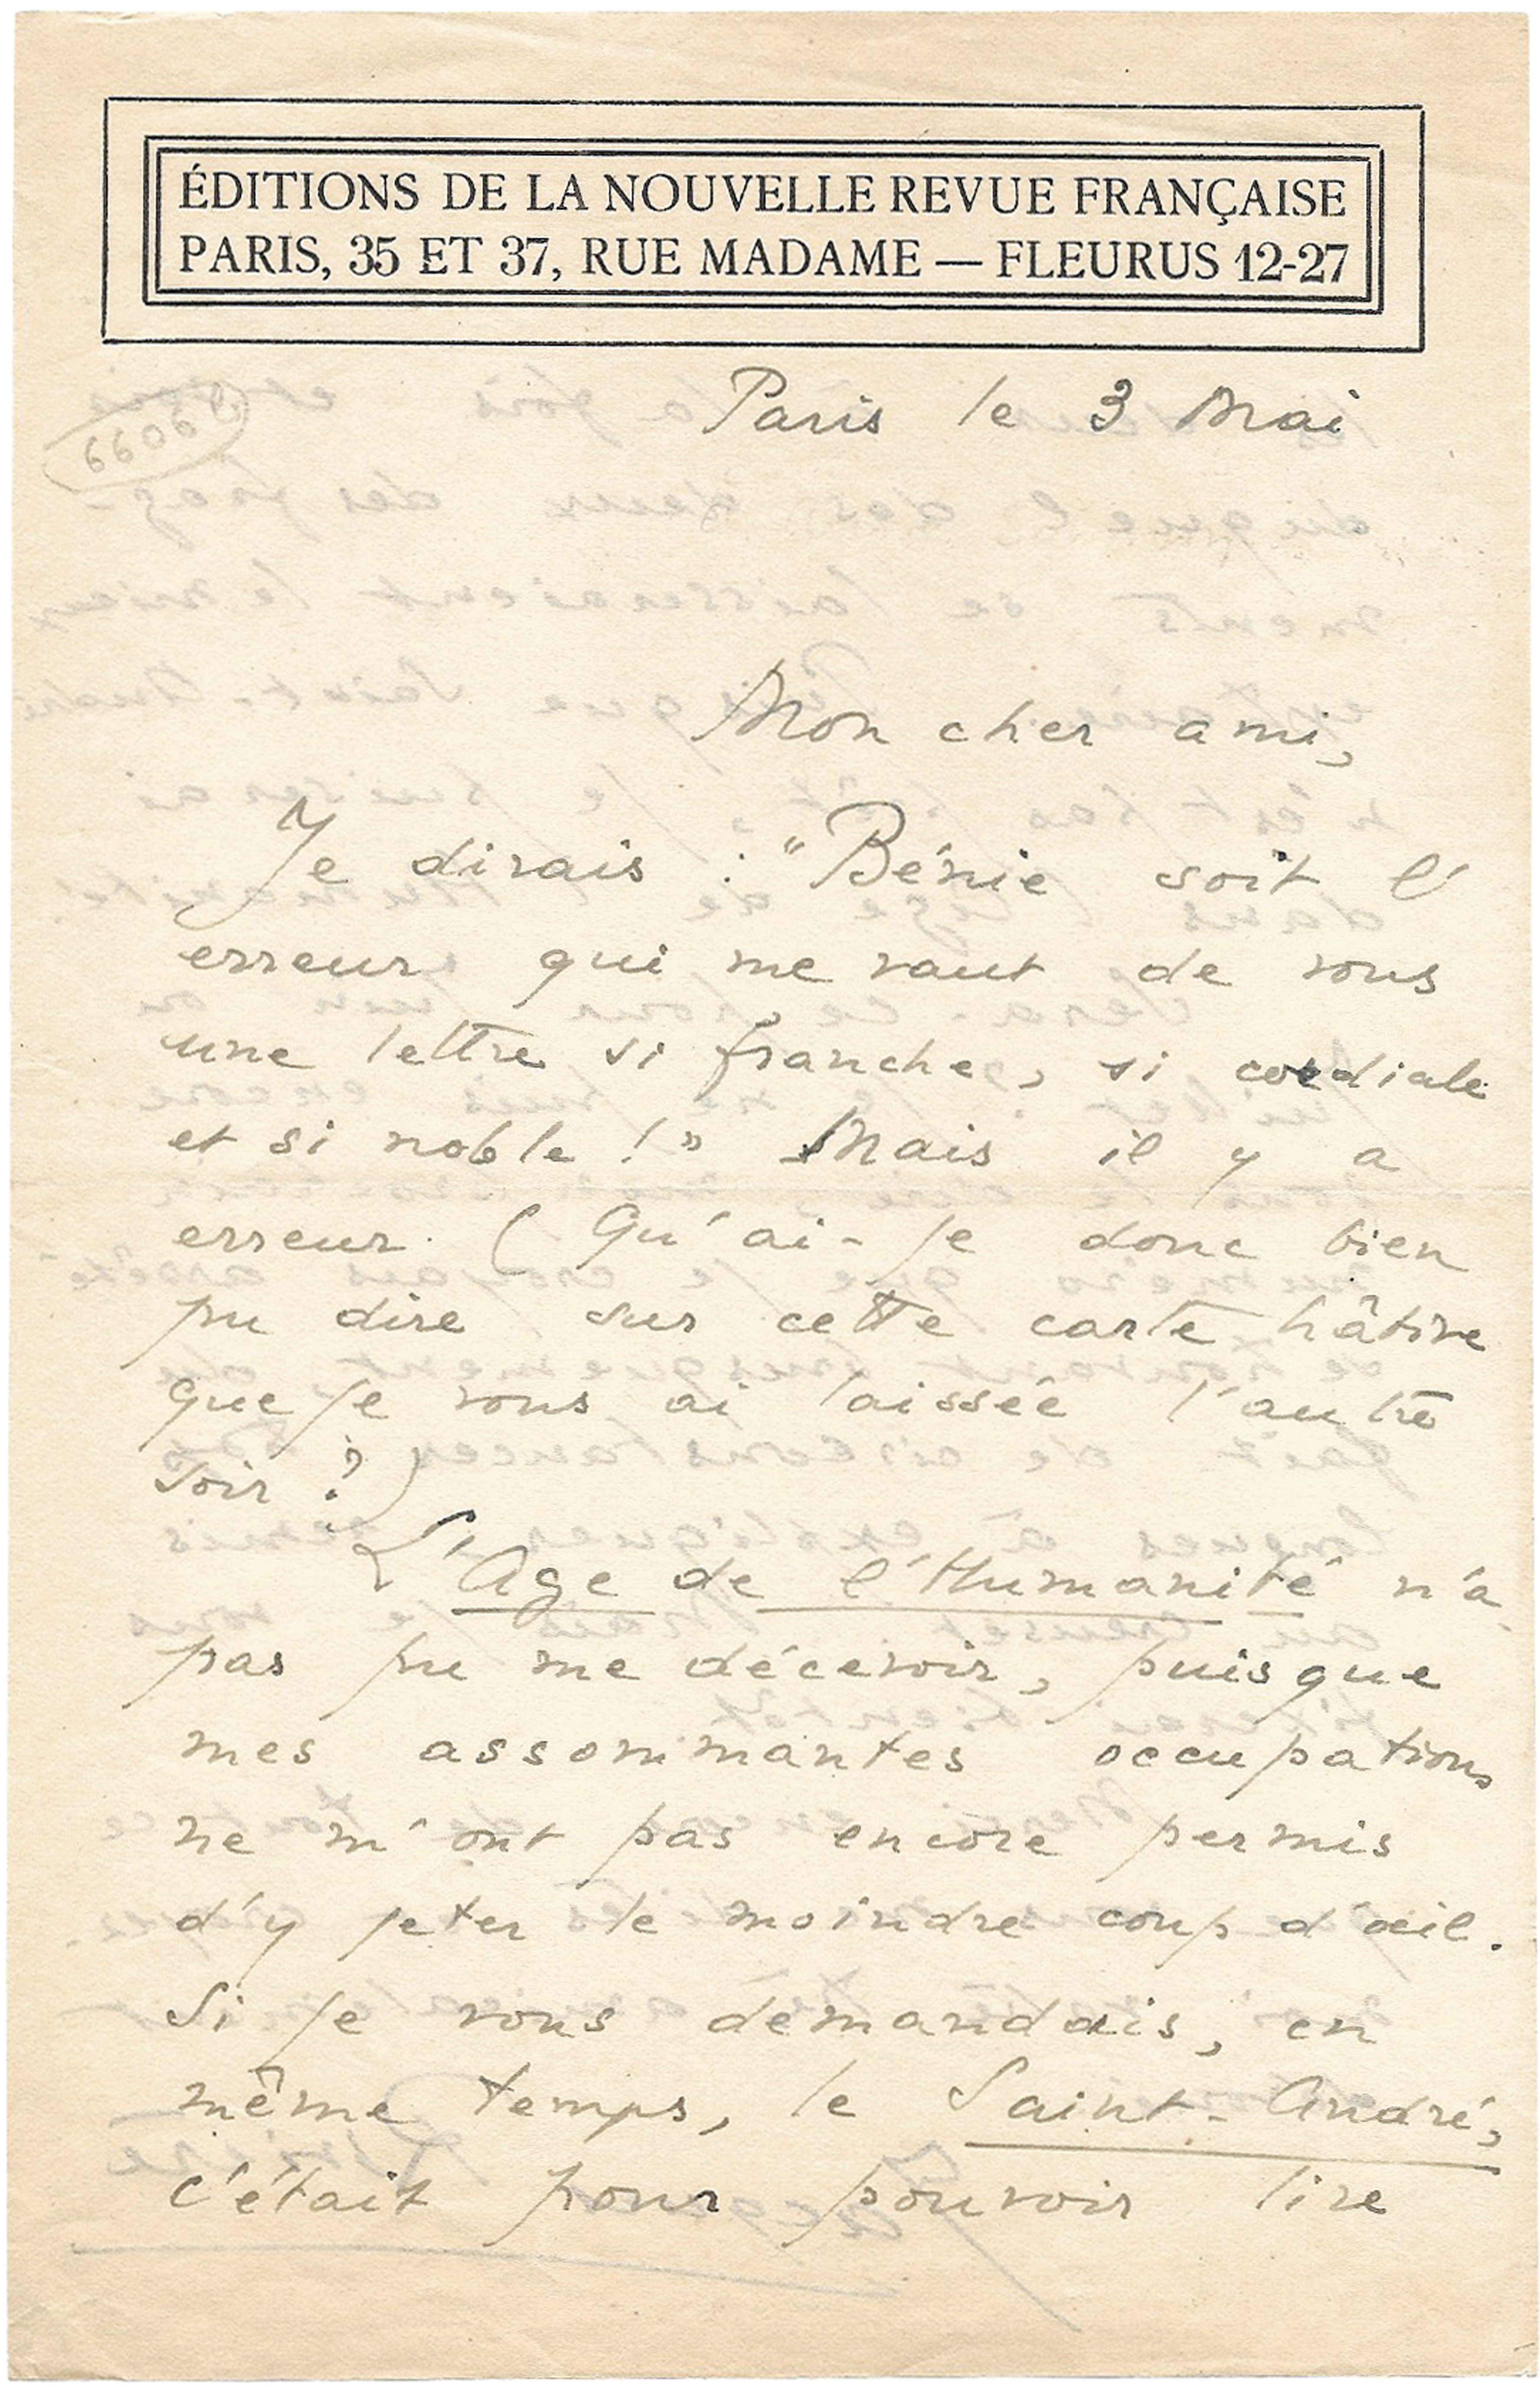 ÉDITIONS DE LA NOUVELLE REVUE FRANÇAISE
PARIS, 35 ET 37, RUE MADAME — FLEURUS 12-27
Paris le 3 Mai
Mon cher ami,
Je dirais : "Bénie soit l'
erreur qui me vaut de vous
une lettre si franche, si cordiale
et si noble !" Mais il y a
erreur. (Qu'ai-je donc bien
pu dire sur cette carte hâtive
que je vous ai laissée l'autre
soir ?)
L'Age de l'Humanité n'a
pas pu me décevoir, puisque
mes assommantes occupations
ne m'ont pas encore permis
d'y jeter le moindre coup d'œil.
Si je vous demandais, en
même temps, le Saint-André,
c'était pour pouvoir lire